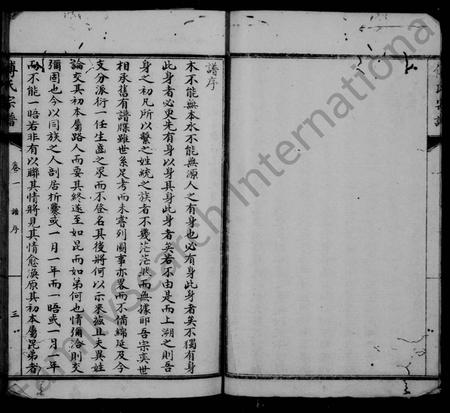 譜序
木不能無本水不能無源人之有身也必有身此身者矣不獨有身
此身者必更先有身以身其身此身者矣若不由是而上溯之則吾
身之初凡所以繫之姓統之族者不幾茫茫然而無據耶吾宗奕世
相承舊有譜牒雖世系足考而未嘗列圖事亦畧而不備綿延及今
支分派衍一任生齒之眾而不登名其後將何以示來茲且夫異姓
論交其初本屬路人而要其終遂至如昆而如弟何也情彌洽則交
彌固也今以同族之人剖居析爨或一月一年而一晤或一月一年
而不能一晤若非有以聯其情將見其情愈渙原其初本屬昆弟者
傅氏宗譜
卷一
譜序
三
Family Search International